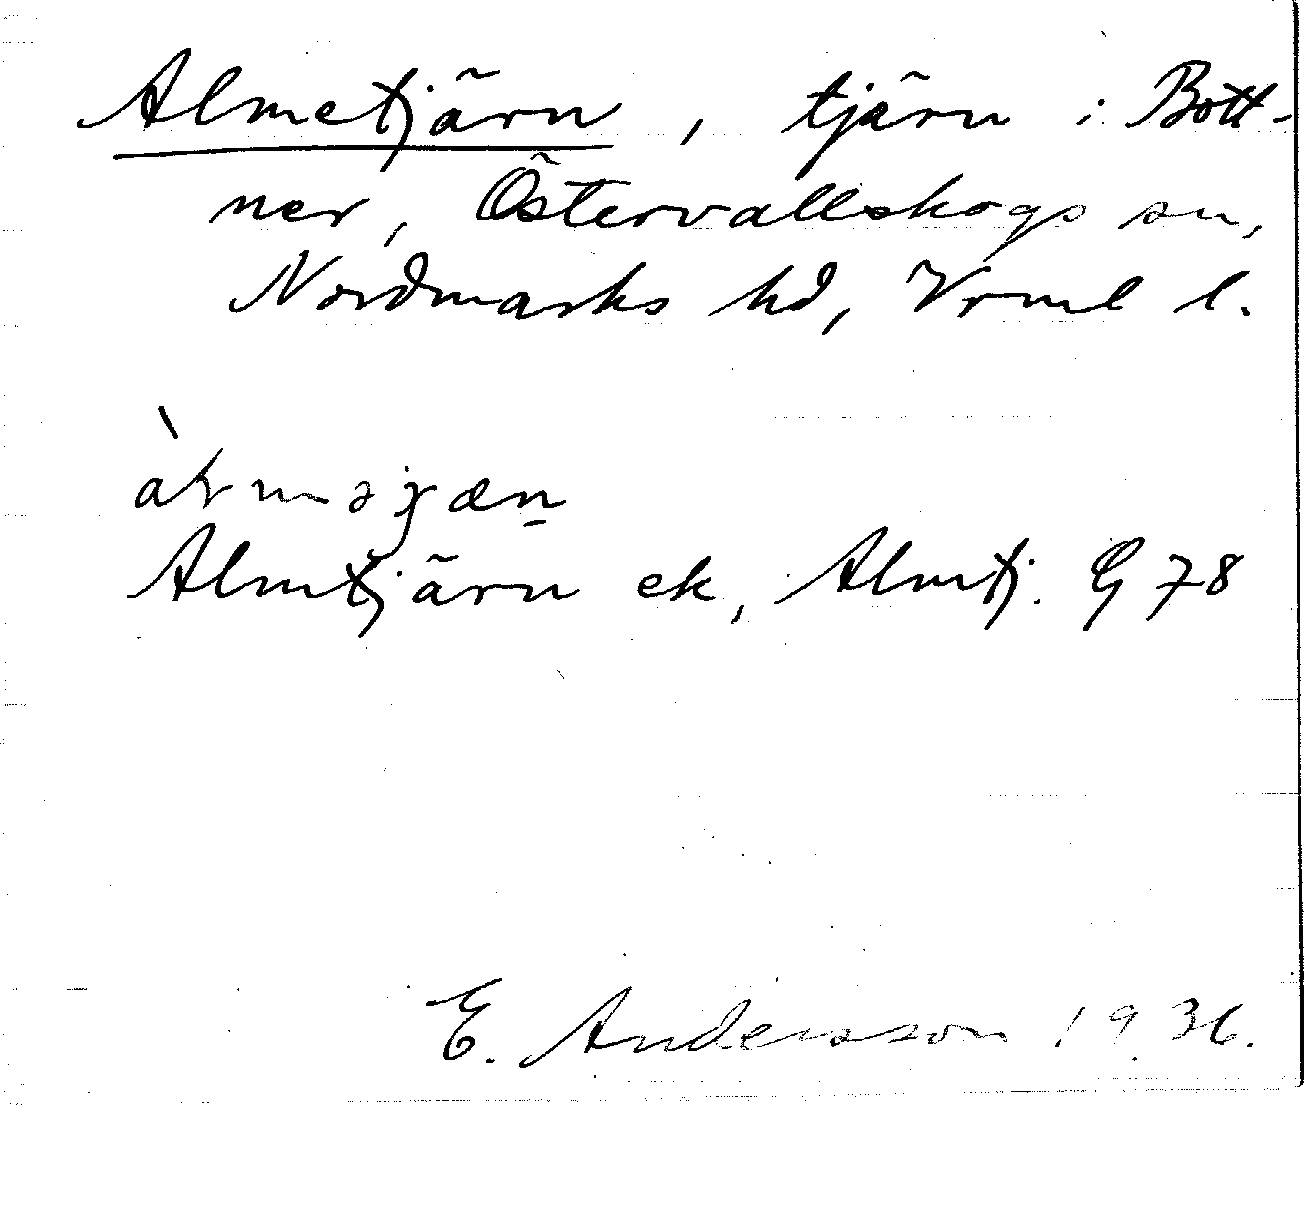 Almetjärn, tjärn i Bott-
ner, Östervallskogs sn,
Nordmarks hd, Vrml l.
Almtjärn ek, Almtj. G 78
E. Andersson 1936.